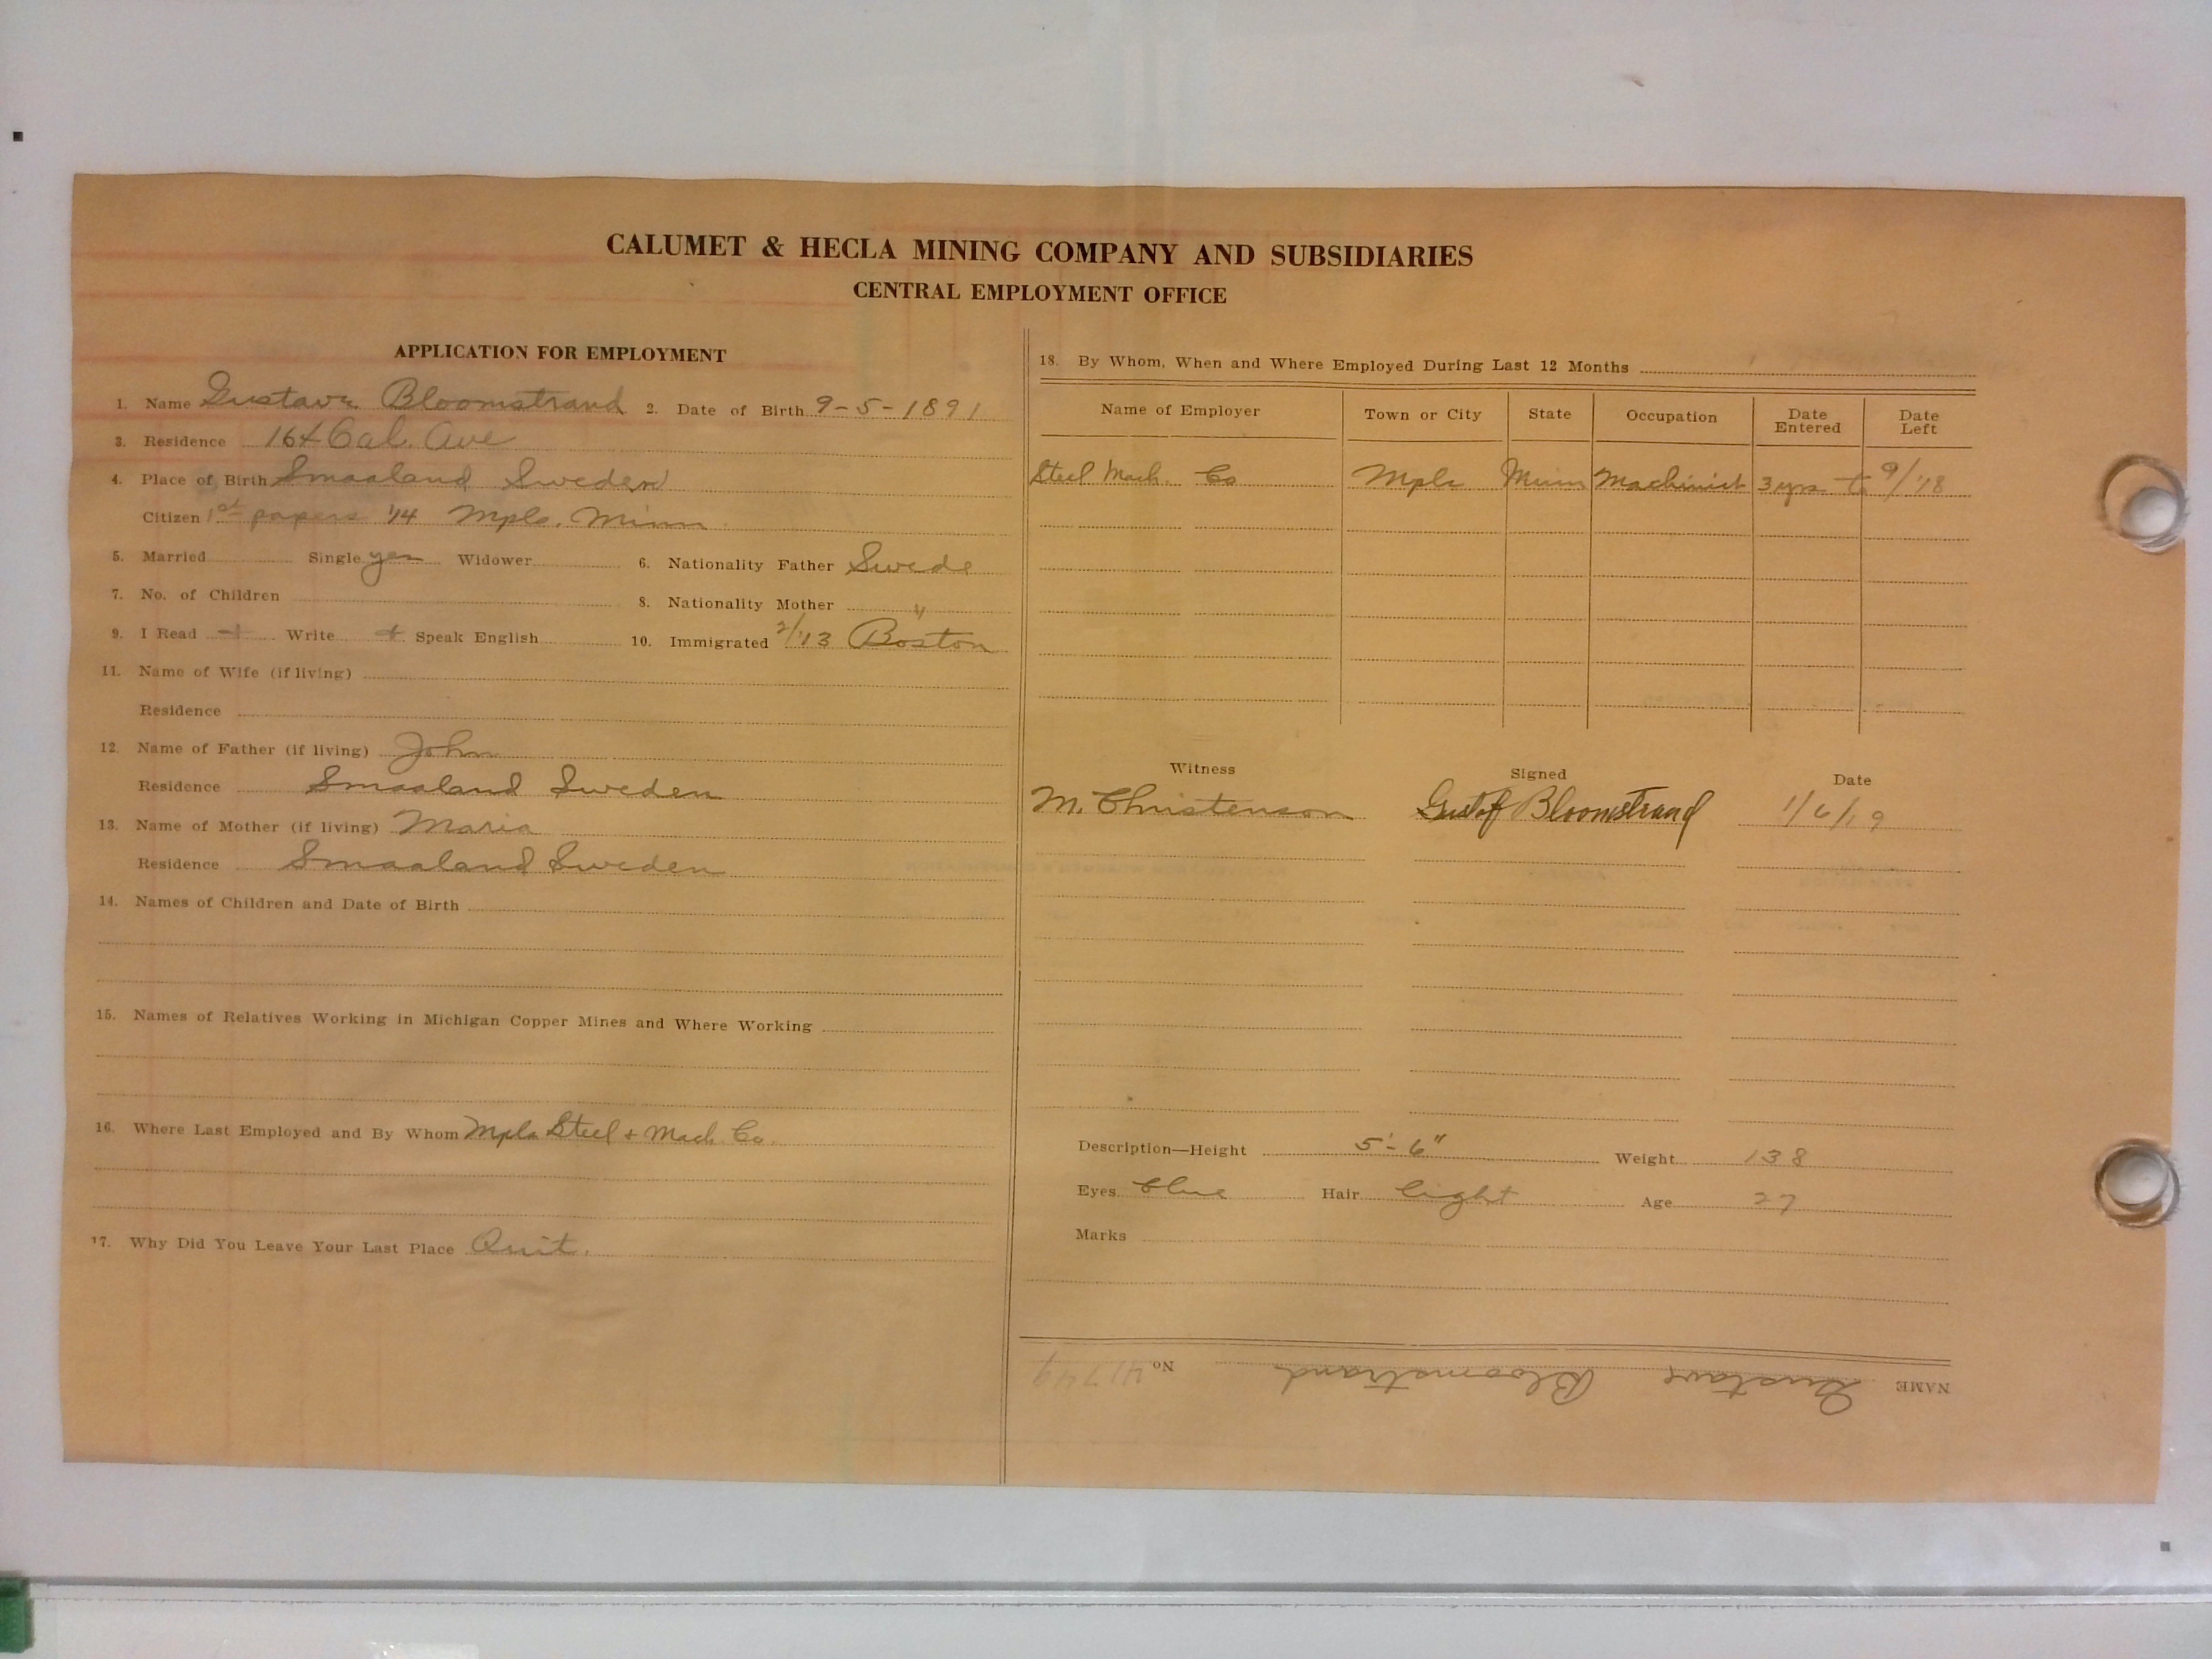 CALUMET & HECLA MINING COMPANY AND SUBSIDIARIES
CENTRAL EMPLOYMENT OFFICE
APPLICATION FOR EMPLOYMENT
1. Name Gustave Bloomstrand 2. Date of Birth 9-5-1891
3. Residence 164 Cal. Ave
4. Place of Birth Smaaland Sweden
Citizen 1st papers '14 Mpls. Minn
5. Married Single yes Widower 6. Nationality Father Swede
7. No. of Children 8. Nationality Mother "
9. I Read + Write + Speak English 10. Immigrated 2/'13 Boston
11. Name of Wife (if living)
Residence
12. Name of Father (if living) John
Residence Smaaland Sweden
13. Name of Mother (if living) Maria
Residence Smaaland Sweden
14. Names of Children and Date of Birth
15. Names of Relatives Working in Michigan Copper Mines and Where Working
16. Where Last Employed and By Whom Mpls Steel + Mach. Co.
17. Why Did You Leave Your Last Place Quit.
18. By Whom, When and Where Employed During Last 12 Months
Name of Employer Town or City State Occupation Date Entered Date Left
Steel Mach. Co Mpls Minn Machinist 3 yrs to 9/'18
Witness Signed Date
M. Christenson Gustof Bloomstrand 1/6/19
Description—Height 5'-6" Weight 138
Eyes blue Hair light Age 27
Marks
NAME Gustave Bloomstrand No. 41749